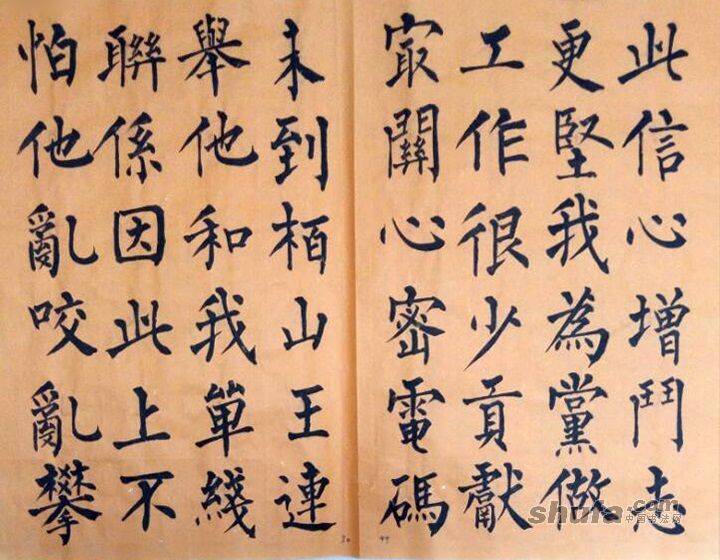 此信心增鬥志
更堅我為黨做
工作很少貢獻
㝡關心密電碼
未到栢山王連
舉他和我單綫
聯係因此上不
怕他亂咬亂攀
shufa.com
中国书法网